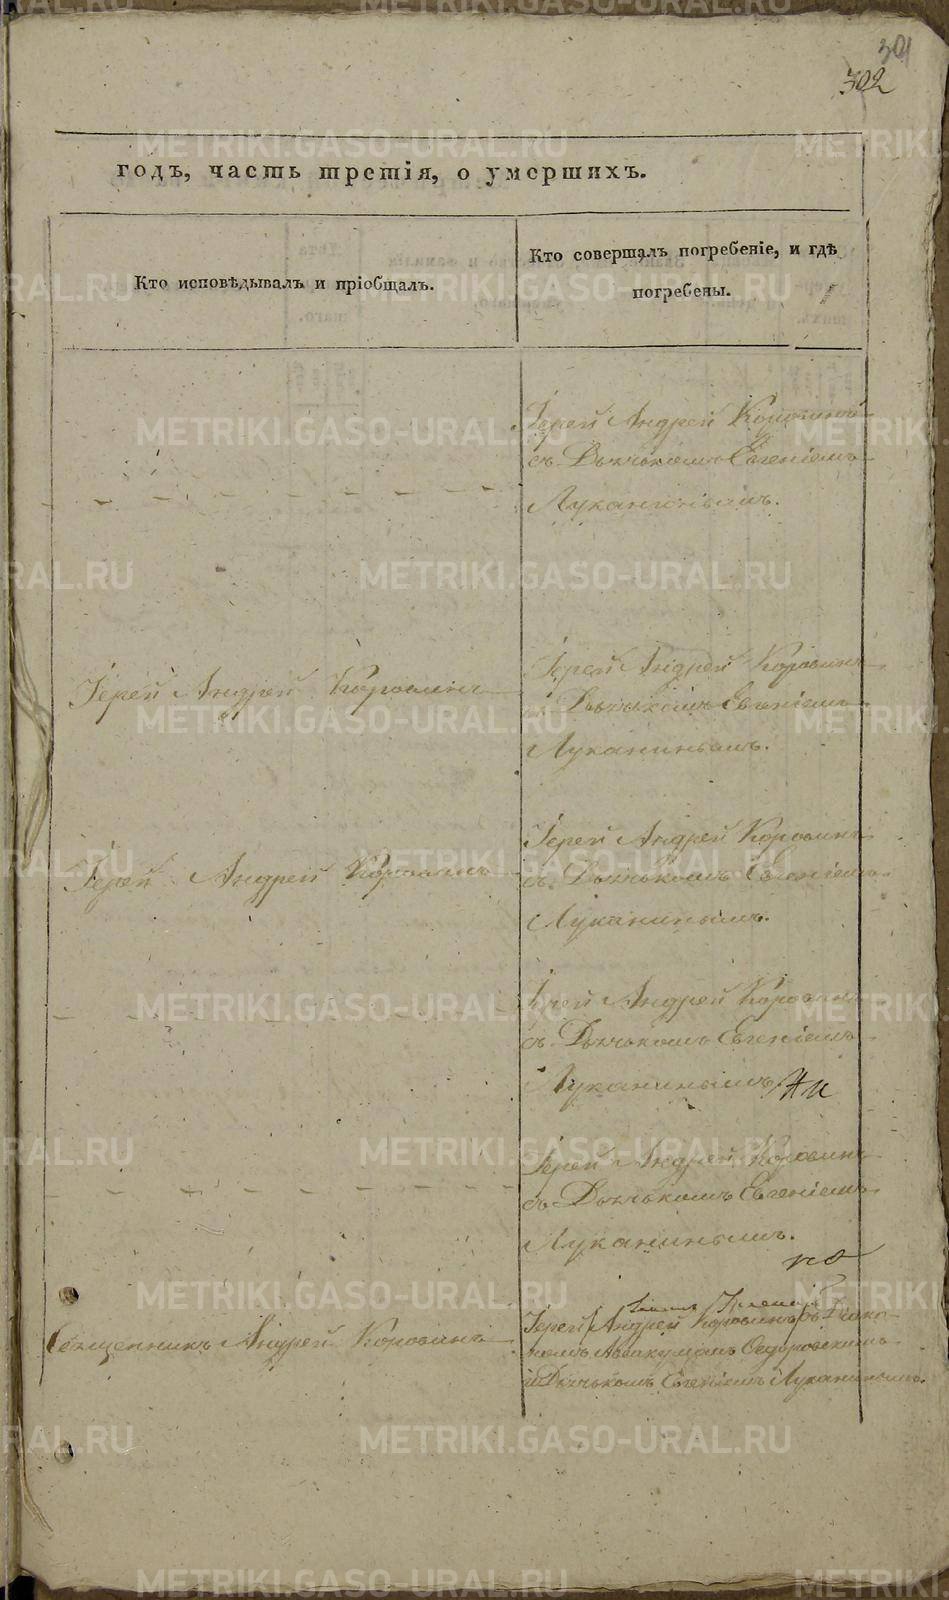 301
302
годъ, часть третія, о умершихъ.
Кто исповѣдывалъ и пріобщалъ.
Кто совершалъ погребеніе, и гдѣ
погребены.
Іерей Андрей Коровинъ
съ Дьячькомъ Евгеніемъ
Луканинымъ.
Іерей Андрей Коровинъ
Іерей Андрей Коровинъ
съ Дьячькомъ Евгеніемъ
Луканинымъ.
Іерей Андрей Коровинъ
Іерей Андрей Коровинъ
съ Дьячькомъ Евгеніемъ
Луканинымъ.
Іерей Андрей Коровинъ
съ Дьячькомъ Евгеніемъ
Луканинымъ
Іерей Андрей Коровинъ
съ Дьячькомъ Евгеніемъ
Луканинымъ.
но
Священникъ Андрей Коровинъ
Іерей Андрей Коровинъ съ Діако-
номъ Аввакумомъ
и Дьячькомъ Евгеніемъ Луканинымъ.
METRIKI.GASO-URAL.RU